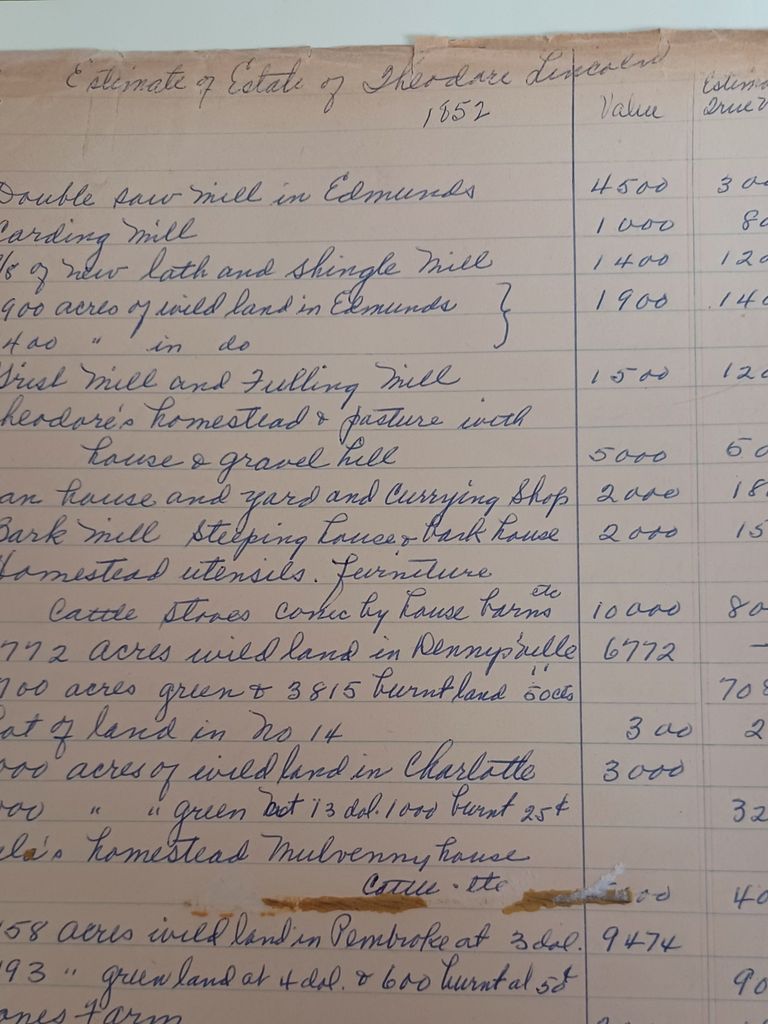 Estimate of Estate of Theodore Lincoln
1852 Value
Double saw mill in Edmunds 4500
Carding Mill 1000
of new lath and shingle Mill 1400
900 acres of wild land in Edmunds } 1900
400 " in do
Grist Mill and Fulling Mill 1500
Theodore's homestead & pasture with
house & gravel hill 5000
house and yard and Currying Shop 2000
Bark Mill Steeping house & bark house 2000
Homestead utensils. furniture
Cattle Stores conic by house barns etc 10000
772 acres wild land in Dennysville 6772
700 acres green & 3815 burnt land 50cts
Lot of land in No 14 300
000 acres of wild land in Charlotte 3000
000 " " green lot 13 dol. 1000 burnt 25¢
homestead Mulvenny house
Cattle - etc
158 acres wild land in Pembroke at 3 dol. 9474
193 " green land at 4 dol. & 600 burnt at 50¢
Farm